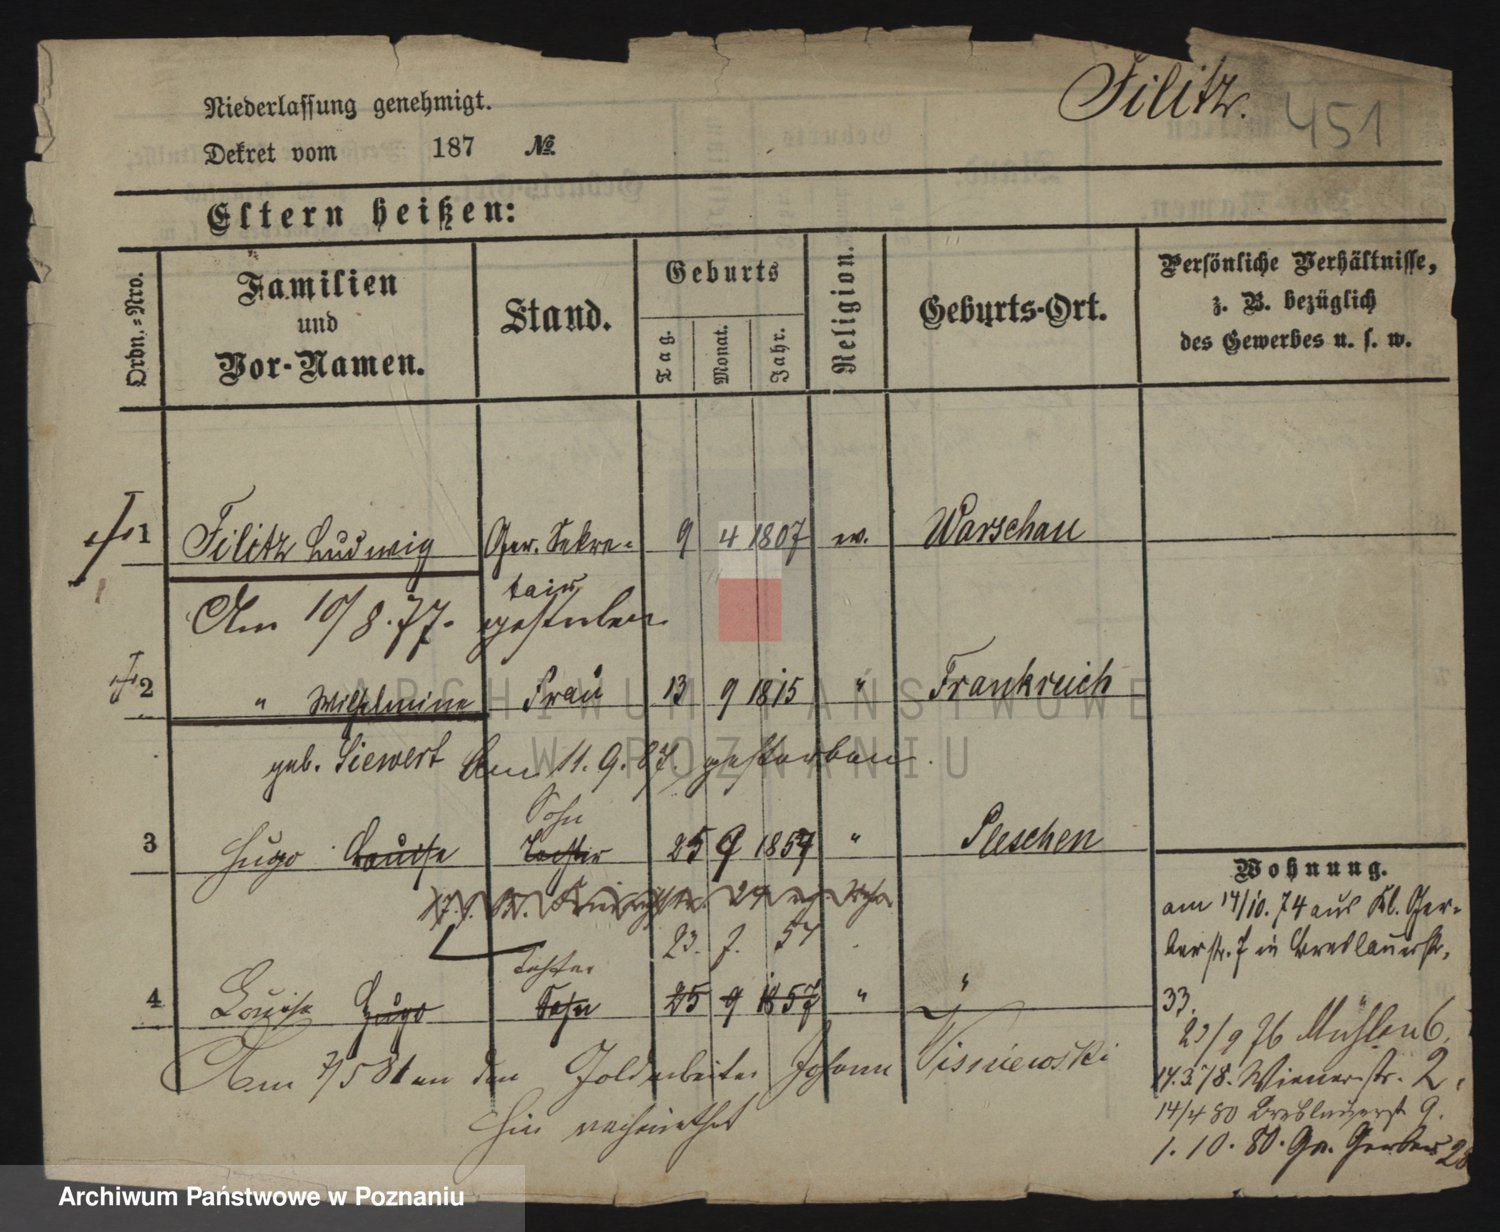 Filitz.
451
Niederlassung genehmigt.
Dekret vom 187 №.
Eltern heißen:
Ordn.=Nro.
Familien
und
Vor-Namen.
Stand.
Geburts
Tag.
Monat.
Jahr.
Religion.
Geburts-Ort.
Persönliche Verhältnisse,
z. B. bezüglich
des Gewerbes u. s. w.
1 Filitz Ludwig Ger. Sekre= 9 4 1807 ev. Warschau
tair
Am 10/8.77. gestorben
2 " Wilhelmine Frau 13 9 1815 " Frankreich
geb. Siewert Am 11.9.87 gestorben.
Sohn
3 Hugo Louise Tochter 25 9 1857 " Pleschen
23. 7. 57
Tochter
4 Louise Hugo Sohn 25 9 1857 " "
Am 7/5 81 an den Goldarbeiter Johann Wisniewski
hier verheirathet
Wohnung.
am 14/10. 74 aus Kl. Ger=
berstr. 7 in Breslauerstr.
33.
23/9 76 Mühlen 6.
14.3.78. Wienerstr. 2.
14/4 80 Breslauerst 9.
1. 10. 80. Gr. Gerber 28
ARCHIWUM PAŃSTWOWE
W POZNANIU
Archiwum Państwowe w Poznaniu